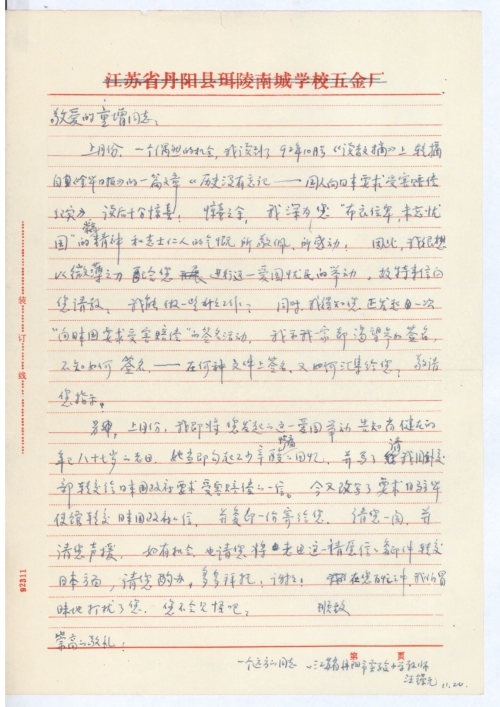 江苏省丹阳县珥陵南城学校五金厂
敬爱的童增同志：
上月份，一个偶然的机会，我读到了92年10月号《读者文摘》上转摘
自《青年日报》的一篇文章《历史没有忘记——国人向日本要求受害赔偿
纪实》，读后十分惊喜。惊喜之余，我深为您"布衣位卑，未忘忧
国"的精神和志士仁人的气慨所敬佩、所感动！因此，我很想
以微薄之力配合您进行这一爱国忧民的举动，故特来信向
您请教，我能做一些什么工作？同时，我得知您正发起一次
"向日国要求受害赔偿"的签名活动，我和我全部渴望参加签名，
不知如何签名，——在何种文件上签名，又如何汇集给您？敬请
您指示。
另外，上月份，我即将您发起的这一爱国举动告知尚健在的
年已八十七岁的老母，她当即勾起不少辛酸的回忆，并写了请我国外交
部转交给日本国政府要求受害赔偿的一信。今又改写了要求日驻华
使馆转交日本国政府的信，并复印一份寄给您。请您一阅，并
请您声援，如有机会，也请您将老母这一请愿信的邮件转交
日本方面，请您酌办，多多拜托！谢谢！在您百忙之中，我们冒
昧地打扰了您，您不会见怪吧。 顺致
崇高的敬礼！
第 页
一个远方的同志
江苏省丹阳市实验小学教师
汪
11.20.
装订线
92311